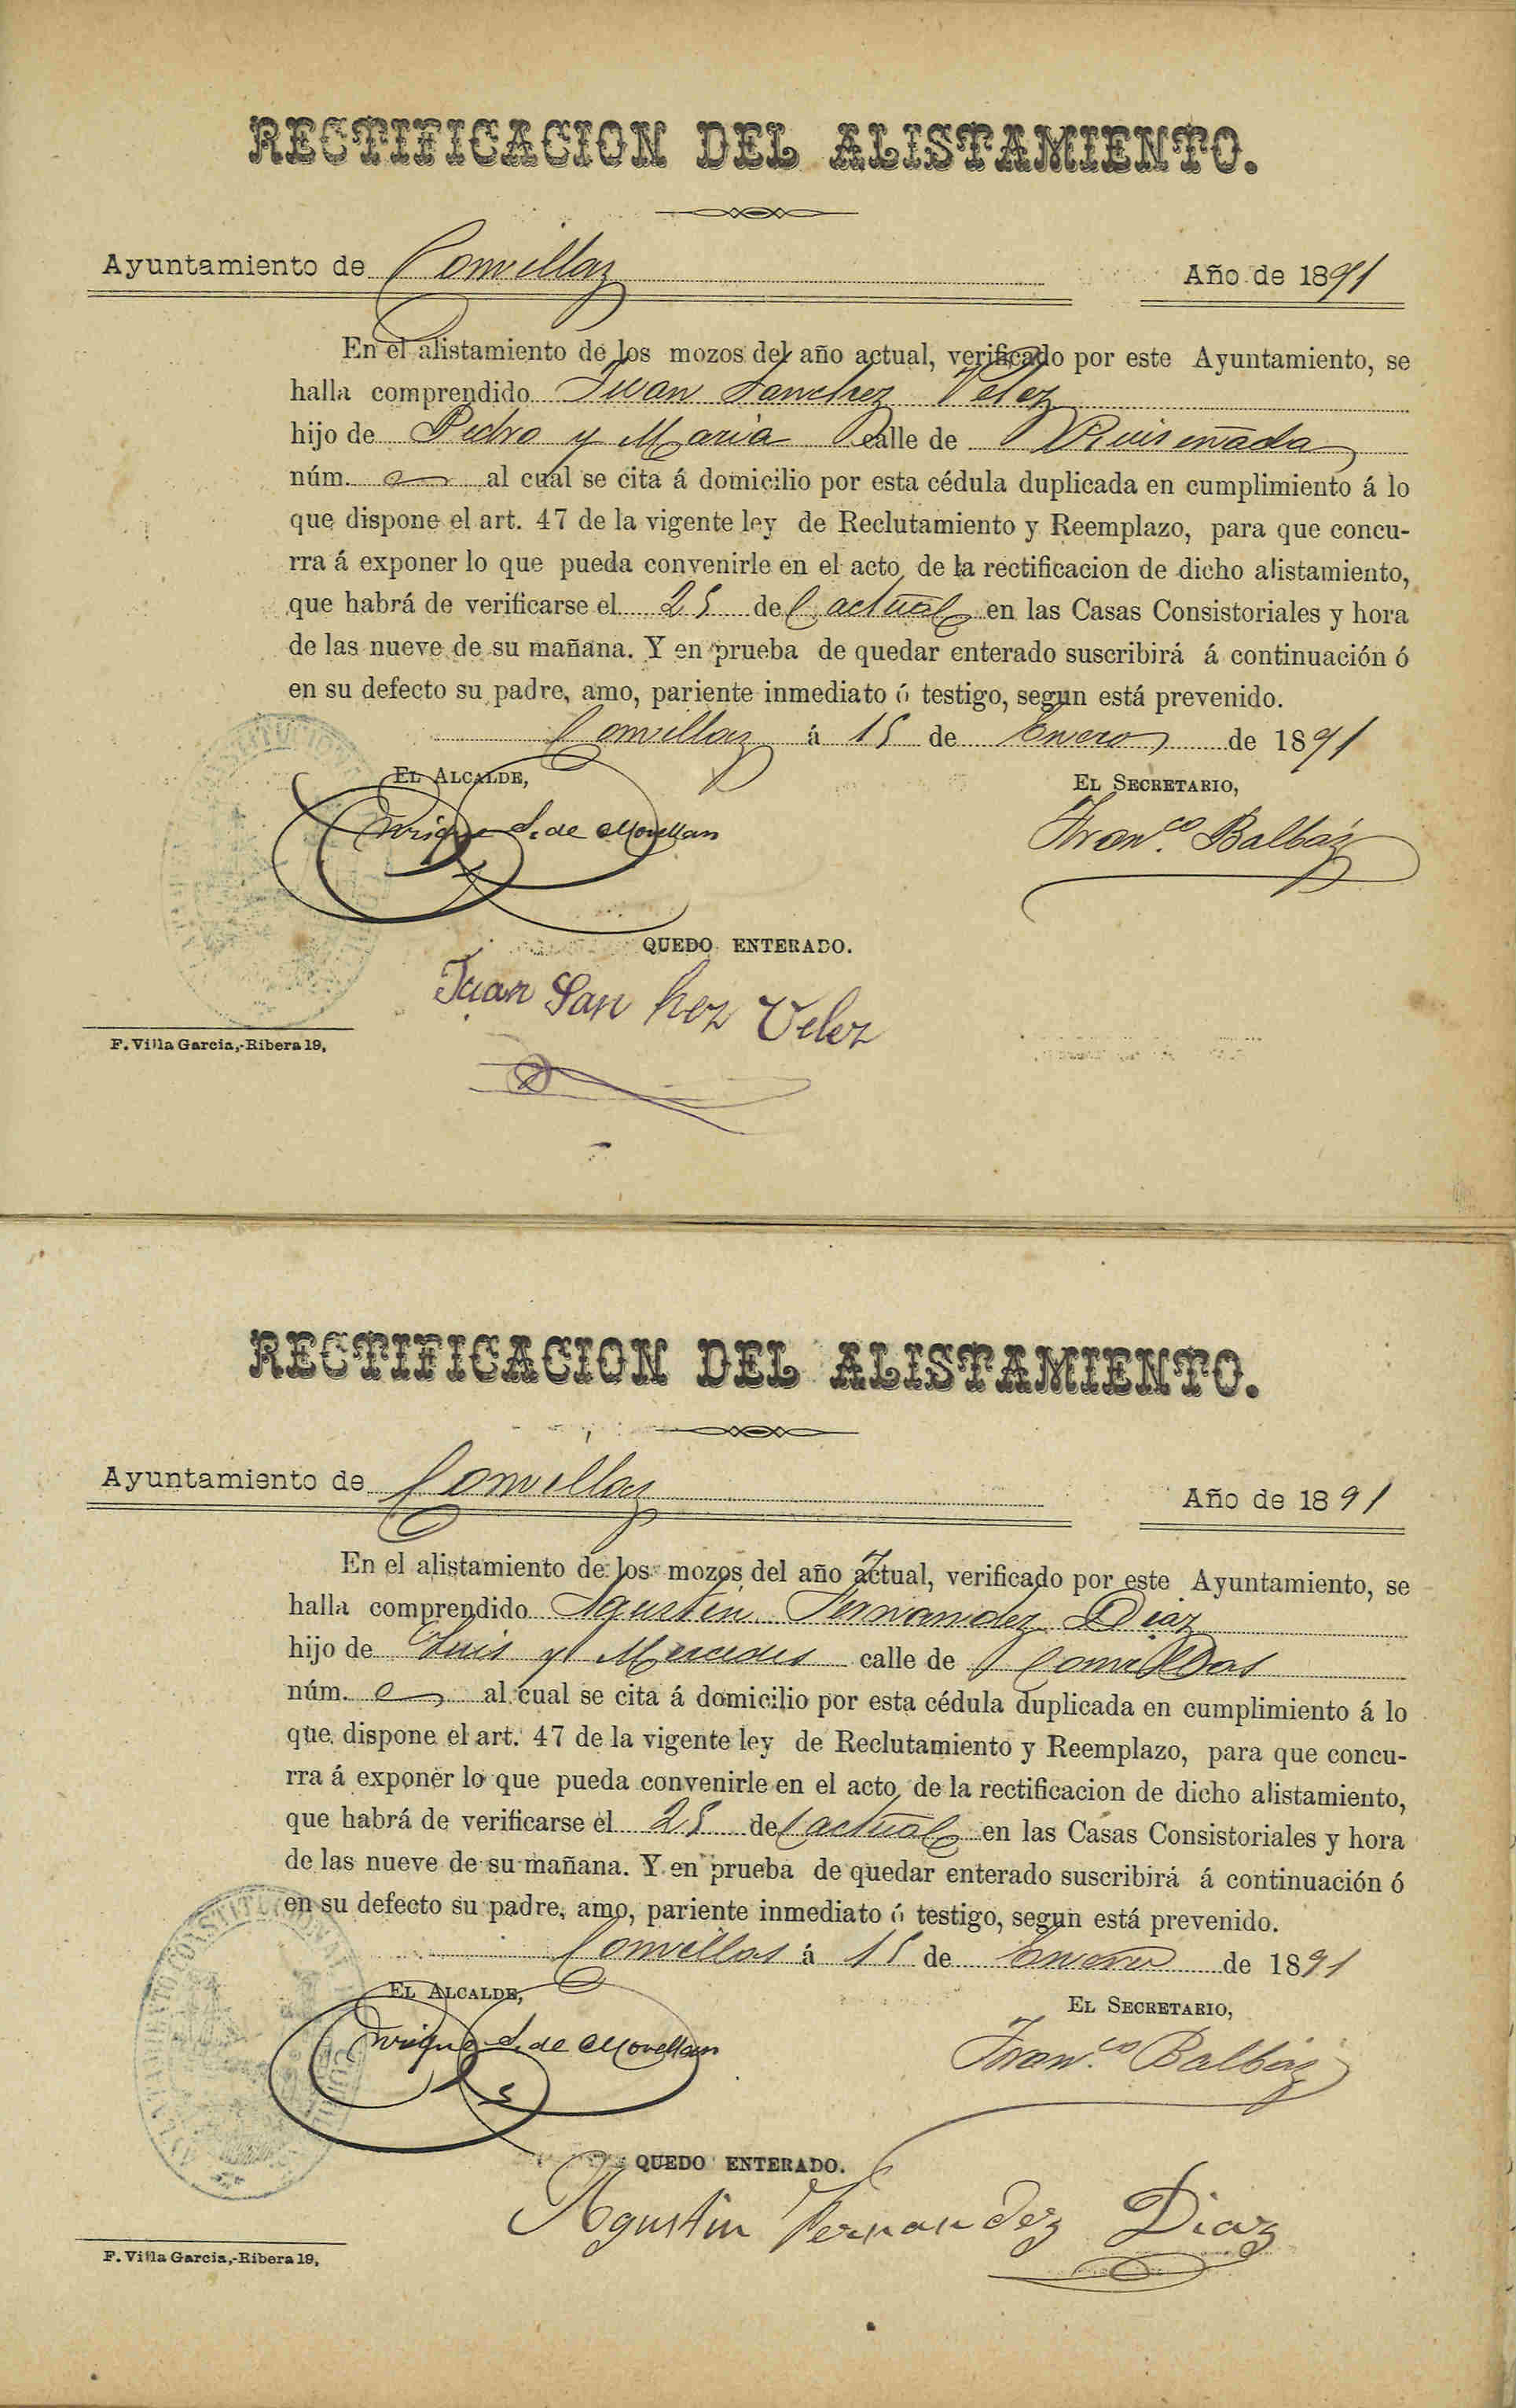 RECTIFICACION DEL ALISTAMIENTO.
Ayuntamiento de Comillas Año de 1891
En el alistamiento de los mozos del año actual, verificado por este Ayuntamiento, se
halla comprendido Juan Sanchez Velez
hijo de Pedro y Maria calle de Ruiseñada
núm. al cual se cita á domicilio por esta cédula duplicada en cumplimiento á lo
que dispone el art. 47 de la vigente ley de Reclutamiento y Reemplazo, para que concu-
rra á exponer lo que pueda convenirle en el acto de la rectificacion de dicho alistamiento,
que habrá de verificarse el 25 del actual en las Casas Consistoriales y hora
de las nueve de su mañana. Y en prueba de quedar enterado suscribirá á continuación ó
en su defecto su padre, amo, pariente inmediato ó testigo, segun está prevenido.
Comillas á 15 de Enero de 1891
EL ALCALDE, EL SECRETARIO,
Enrique S. de Movellan Franco. Balbás
QUEDO ENTERADO.
Juan San hez Velez
F. Villa Garcia,-Ribera 19,
RECTIFICACION DEL ALISTAMIENTO.
Ayuntamiento de Comillas Año de 1891
En el alistamiento de los mozos del año actual, verificado por este Ayuntamiento, se
halla comprendido Agustin Fernandez Diaz
hijo de Luis y Mercedes calle de Comillas
núm. al cual se cita á domicilio por esta cédula duplicada en cumplimiento á lo
que dispone el art. 47 de la vigente ley de Reclutamiento y Reemplazo, para que concu-
rra á exponer lo que pueda convenirle en el acto de la rectificacion de dicho alistamiento,
que habrá de verificarse el 25 del actual en las Casas Consistoriales y hora
de las nueve de su mañana. Y en prueba de quedar enterado suscribirá á continuación ó
en su defecto su padre, amo, pariente inmediato ó testigo, segun está prevenido.
Comillas á 15 de Enero de 1891
EL ALCALDE, EL SECRETARIO,
Enrique S. de Movellan Franco. Balbás
QUEDO ENTERADO.
Agustin Fernandez Diaz
F. Villa Garcia,-Ribera 19,